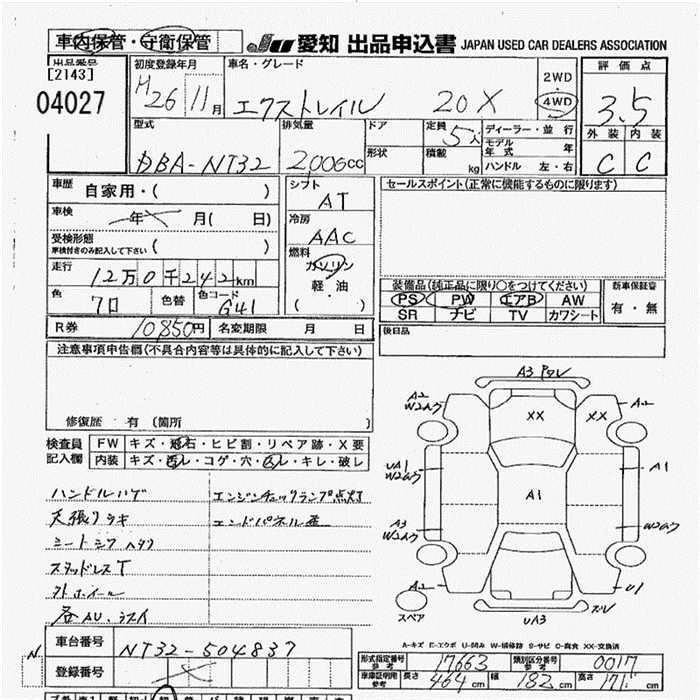 車内保管・守衛保管
JU 愛知 出品申込書 JAPAN USED CAR DEALERS ASSOCIATION
出品番号 初度登録年月 車名・グレード 2WD 評価点
[2143]
04027 H26 11月 エクストレイル 20X 4WD 3.5
型式 排気量 ドア 定員 5人 ディーラー・並行 外装 内装
モデル年式 年
DBA-NT32 2000cc 形状 積載 kg ハンドル 左・右 C C
車歴 自家用・( ) シフト AT セールスポイント(正常に機能するものに限ります)
車検 年 月( 日) 冷房 AAC
受検形態 車検付きのみ記入して下さい ( ) 燃料 ガソリン
走行 12万0千242km 軽・油
装備品(純正品に限り○をつけてください) 新車保証書
色 クロ 色替 色コード G41 ( )
PS PW エアB AW 有・無
SR ナビ TV カワシート
R券 10850円 名変期限 月 日 後日品
注意事項申告欄(不具合内容等は具体的に記入して下さい)
修復歴 有 (箇所 )
検査員記入欄 FW キズ・飛石・ヒビ割・リペア跡・X要
内装 キズ・汚レ・コゲ・穴・スレ・キレ・破レ
ハンドルハゲ エンジンチェックランプ点灯
天張リキ エンドパネル歪
シートシワ ヘタリ
スタッドレスT
外ホイール
A3 ワレ
A2
W2アウ
XX
XX
A2
UA1
W2アウ
A1
A1
A3
W2アウ
W2アウ
A2
U1
スペア
UA3
ズレ
A-キズ E-エクボ U-凹み W-補修跡 S-サビ C-腐食 XX-交換済
車台番号 NT32-504837
登録番号
形式指定番号 参考 17663 類別区分番号 参考 0017
車庫証明用 参考 長さ 464cm 幅 182cm 高さ 171cm